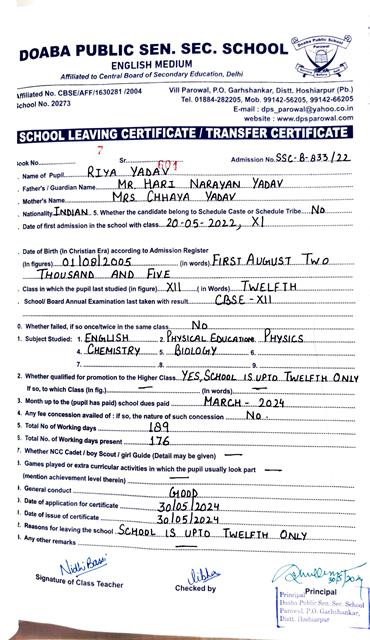 DOABA PUBLIC SEN. SEC. SCHOOL
ENGLISH MEDIUM
Affiliated to Central Board of Secondary Education, Delhi
Affiliated No. CBSE/AFF/1630281 /2004
School No. 20273
Vill Parowal, P.O. Garhshankar, Distt. Hoshiarpur (Pb.)
Tel. 01884-282205, Mob. 99142-56205, 99142-66205
E-mail : dps_parowal@yahoo.co.in
website : www.dpsparowal.com
SCHOOL LEAVING CERTIFICATE / TRANSFER CERTIFICATE
ook No. 7 Sr. 601 Admission No. SSC-B-833/22
. Name of Pupil RIYA YADAV
. Father's / Guardian Name MR. HARI NARAYAN YADAV
. Mother's Name MRS. CHHAYA YADAV
. Nationality INDIAN 5. Whether the candidate belong to Schedule Caste or Schedule Tribe No
. Date of first admission in the school with class 20-05-2022, XI
. Date of Birth (In Christian Era) according to Admission Register
(In figures) 01/08/2005 (in words) FIRST AUGUST TWO
THOUSAND AND FIVE
. Class in which the pupil last studied (in figure) XII ( in Words) TWELFTH
. School/ Board Annual Examination last taken with result CBSE-XII
0. Whether failed, if so once/twice in the same class No
1. Subject Studied: 1. ENGLISH 2. PHYSICAL EDUCATION PHYSICS
4. CHEMISTRY 5. BIOLOGY 6.
7. 8. 9.
2. Whether qualified for promotion to the Higher Class YES, SCHOOL IS UPTO TWELFTH ONLY
If so, to which Class (in fig.) — (In words) —
3. Month up to the (pupil has paid) school dues paid MARCH - 2024
4. Any fee concession availed of : if so, the nature of such concession No.
5. Total No of Working days 189
6. Total No. of Working days present 176
7. Whether NCC Cadet / boy Scout / girl Guide (Detail may be given) —
8. Games played or extra curricular activities in which the pupil usually look part
(mention achievement level therein) —
. General conduct GOOD
. Date of application for certificate 30/05/2024
. Date of issue of certificate 30/05/2024
. Reasons for leaving the school SCHOOL IS UPTO TWELFTH ONLY
. Any other remarks —
Signature of Class Teacher
Checked by
Principal
Principal
Doaba Public Sen. Sec. School
Parowal, P.O. Garhshankar,
Distt. Hoshiarpur